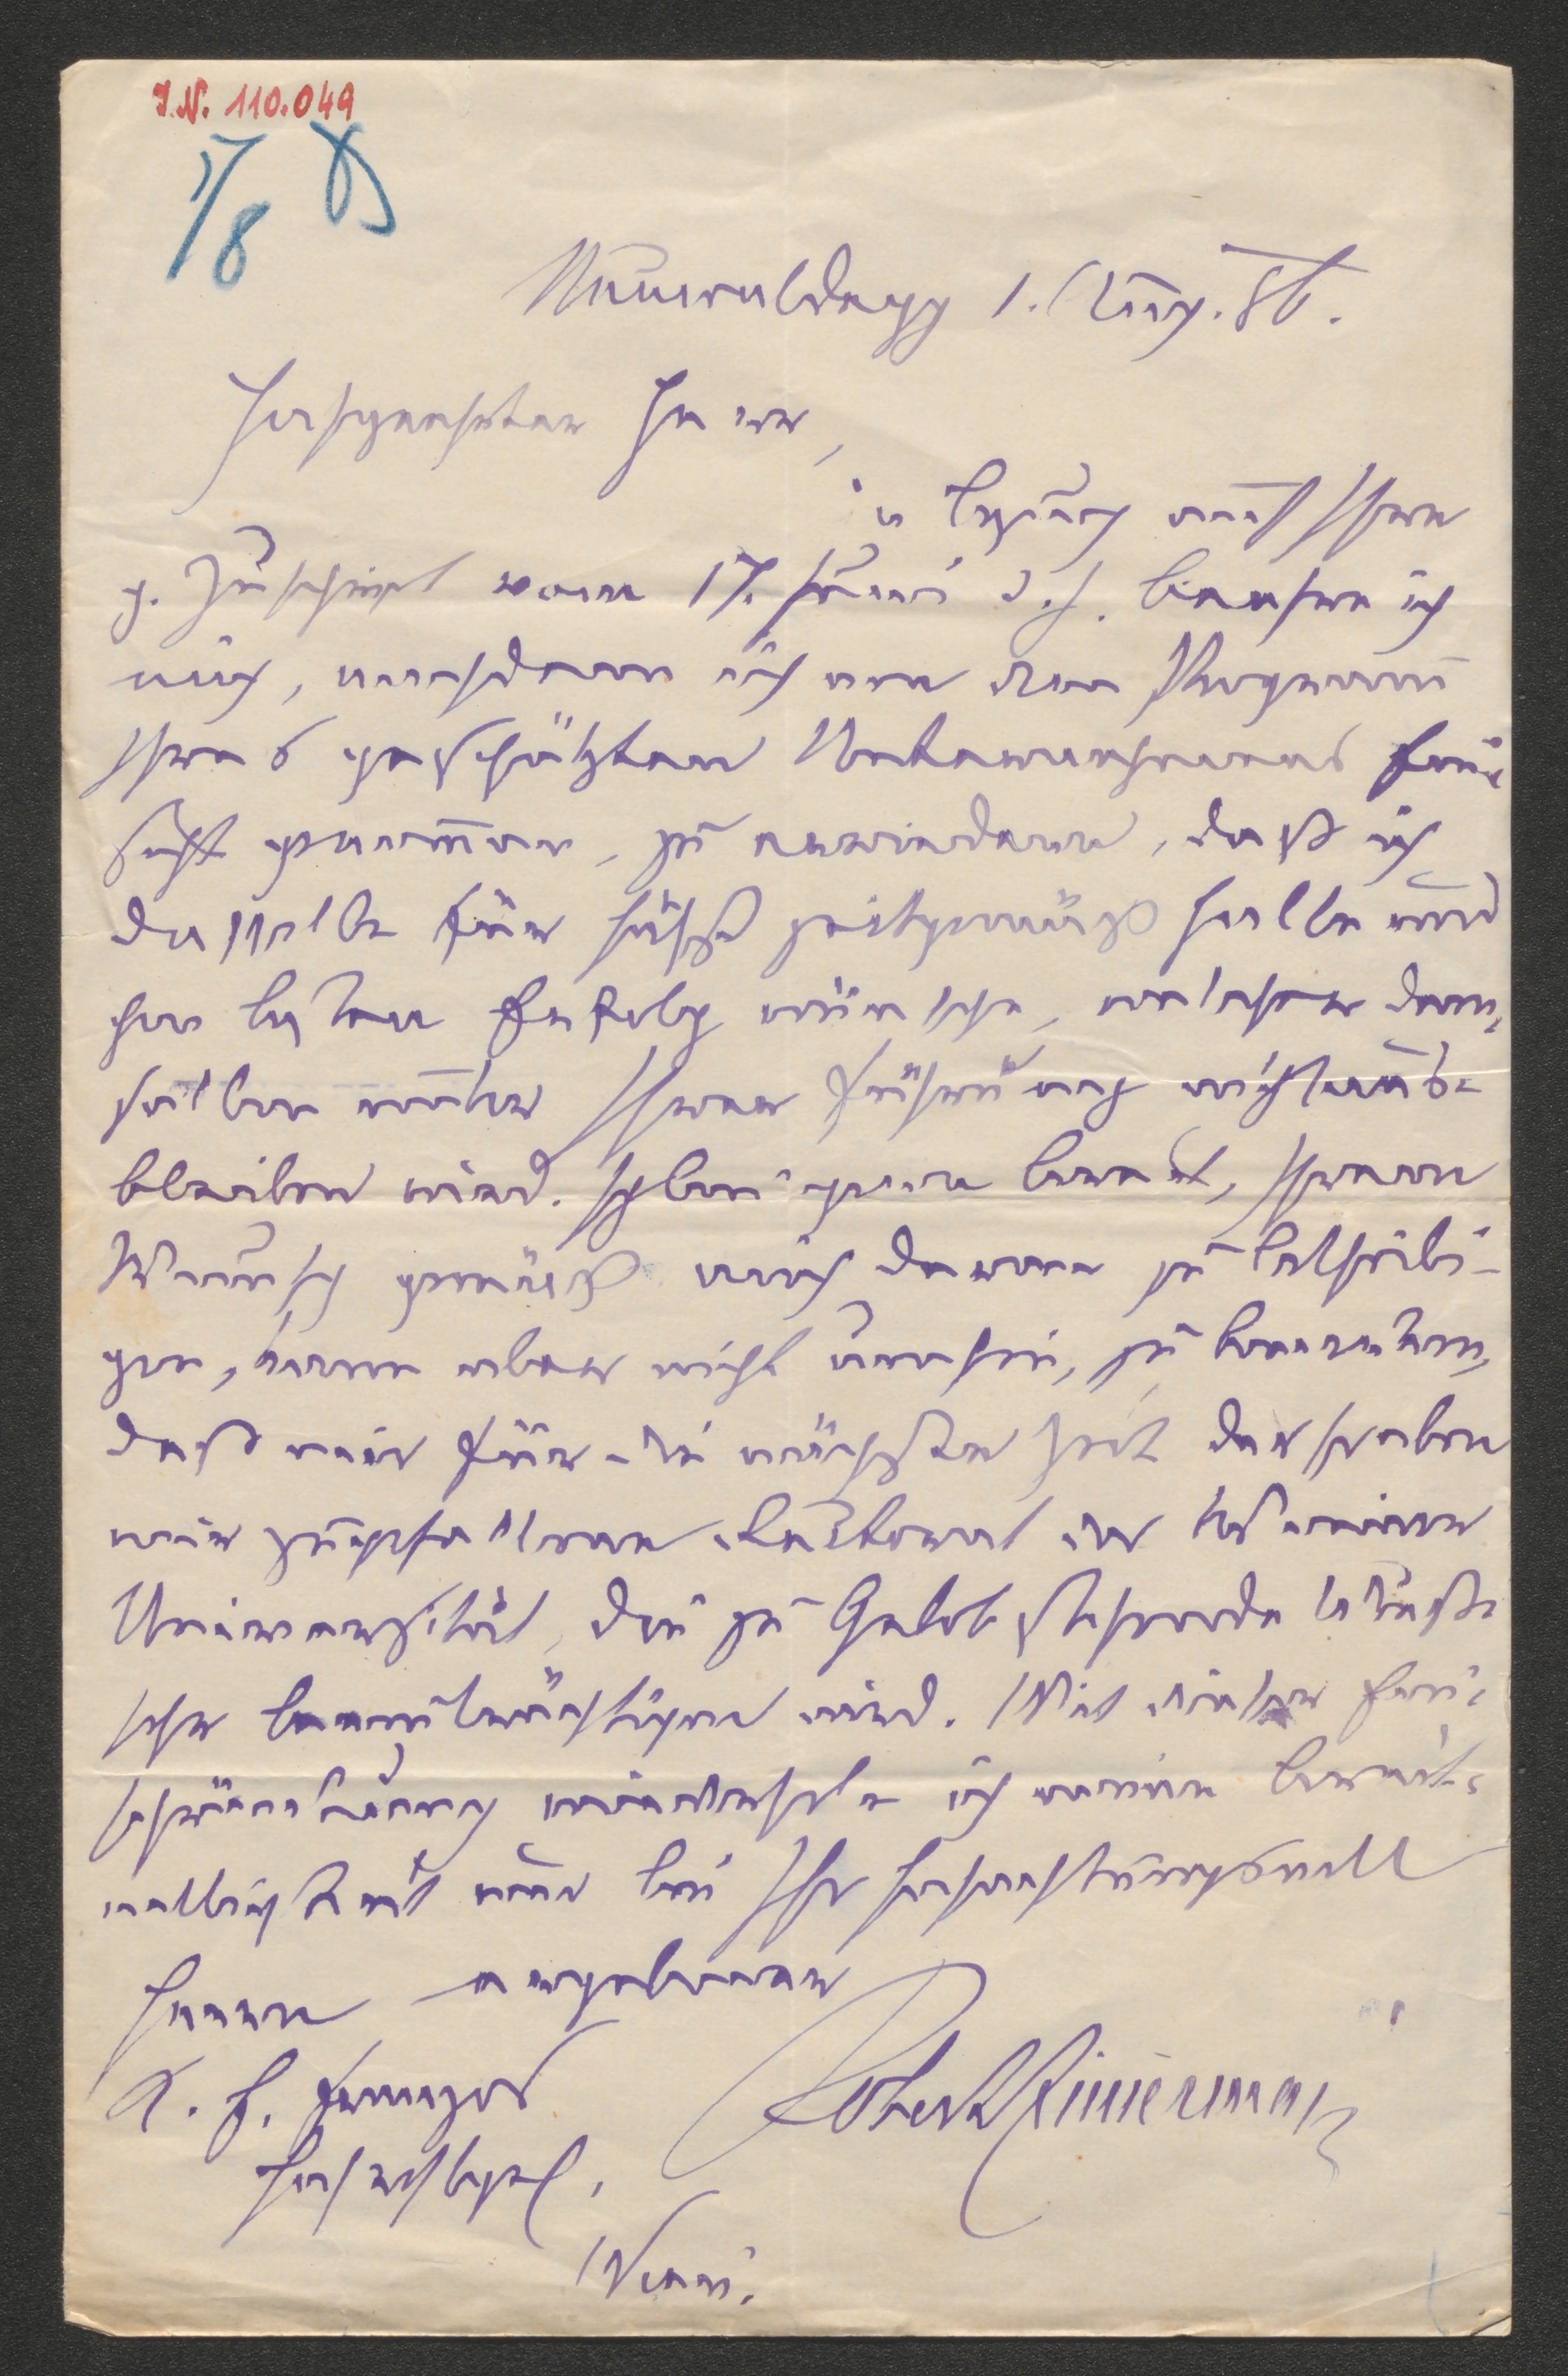 I.N. 110.049
1/8
Neuwaldegg 1. Aug. 86.
Hochgeehrter Herr,
in Bezug auf Ihre
g. Zuschrift vom 17. Juni d. J. beeehre ich
mich, nachdem ich von dem Programm
Ihres geschätzten Unternehmens Ein-
sicht genommen, zu erwiedern, daß ich
dasselbe für höchst zeitgemäß halte und
den besten Erfolg wünsche, welcher dem-
selben unter Ihrer Führung nicht aus-
bleiben wird. Ich bin gern bereit, Ihrem
Wunsch gemäß mich daran zu betheili-
gen, kann aber nicht umhin, zu bemerken,
daß mir für die nächste Zeit das soeben
mir zugefallene Rectorat der Wiener
Universität, die zu Gebot stehende Muße
sehr beeinträchtigen wird. Mit dieser Ein-
schränkung wiederhole ich meine Bereit-
willigkeit und bin Ihr hochachtungsvoll
ergebener
Herrn
K. E. Franzos
Hochwohlgeb.
Robert Zimmermann
Wien.